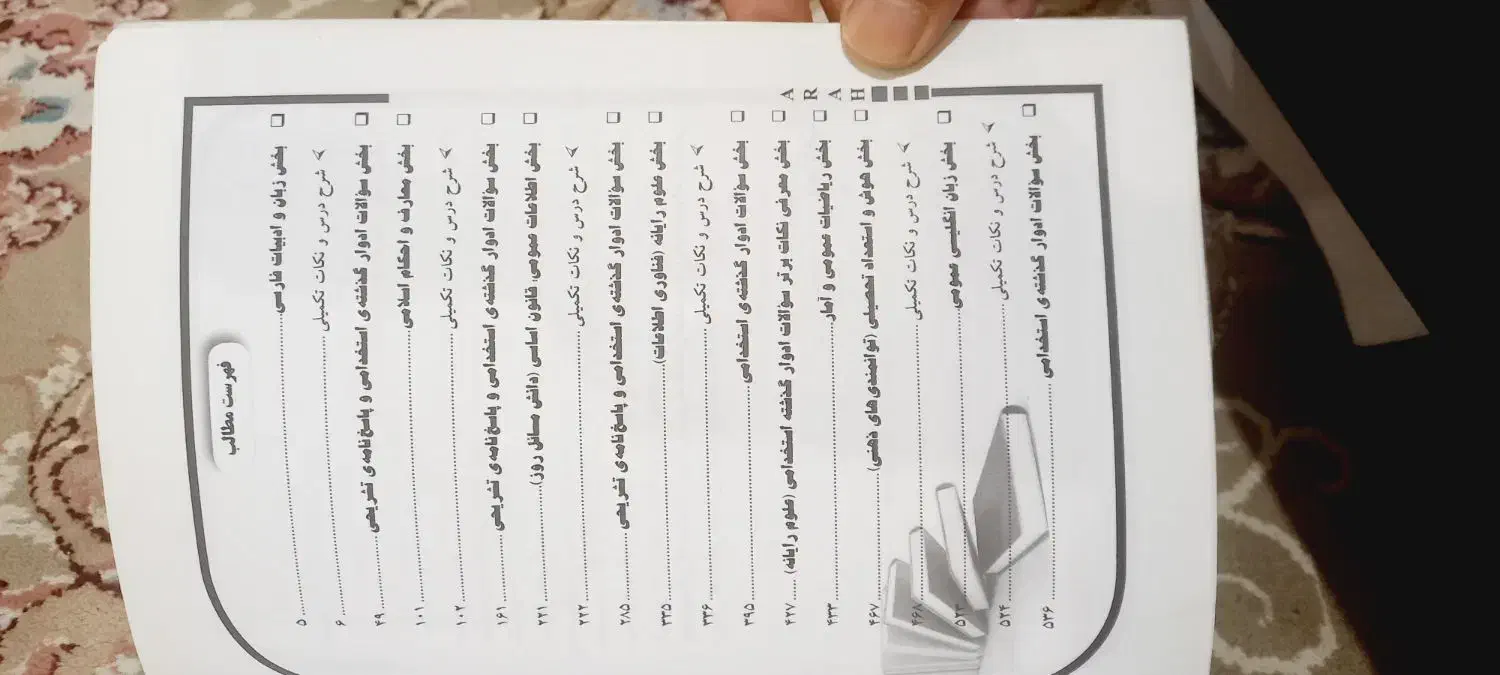 فهرست مطالب
❑ بخش زبان و ادبیات فارسی ........ ۵
➢ شرح درس و نکات تکمیلی ........ ۶
❑ بخش سؤالات ادوار گذشته‌ی استخدامی و پاسخ‌نامه‌ی تشریحی ........ ۴۹
❑ بخش معارف و احکام اسلامی ........ ۱۰۱
➢ شرح درس و نکات تکمیلی ........ ۱۰۲
❑ بخش سؤالات ادوار گذشته‌ی استخدامی و پاسخ‌نامه‌ی تشریحی ........ ۱۶۱
❑ بخش اطلاعات عمومی، قانون اساسی (دانش مسائل روز) ........ ۲۲۱
➢ شرح درس و نکات تکمیلی ........ ۲۲۲
❑ بخش سؤالات ادوار گذشته‌ی استخدامی و پاسخ‌نامه‌ی تشریحی ........ ۲۸۵
❑ بخش علوم رایانه (فناوری اطلاعات) ........ ۳۳۵
➢ شرح درس و نکات تکمیلی ........ ۳۳۶
❑ بخش سؤالات ادوار گذشته‌ی استخدامی ........ ۳۹۵
❑ بخش معرفی نکات برتر سؤالات ادوار گذشته استخدامی (علوم رایانه) ........ ۴۲۷
❑ بخش ریاضیات عمومی و آمار ........ ۴۳۳
❑ بخش هوش و استعداد تحصیلی (توانمندی‌های ذهنی) ........ ۴۶۷
➢ شرح درس و نکات تکمیلی ........ ۴۶۸
❑ بخش زبان انگلیسی عمومی ........ ۵۲۳
➢ شرح درس و نکات تکمیلی ........ ۵۲۴
❑ بخش سؤالات ادوار گذشته‌ی استخدامی ........ ۵۳۶
A R A H